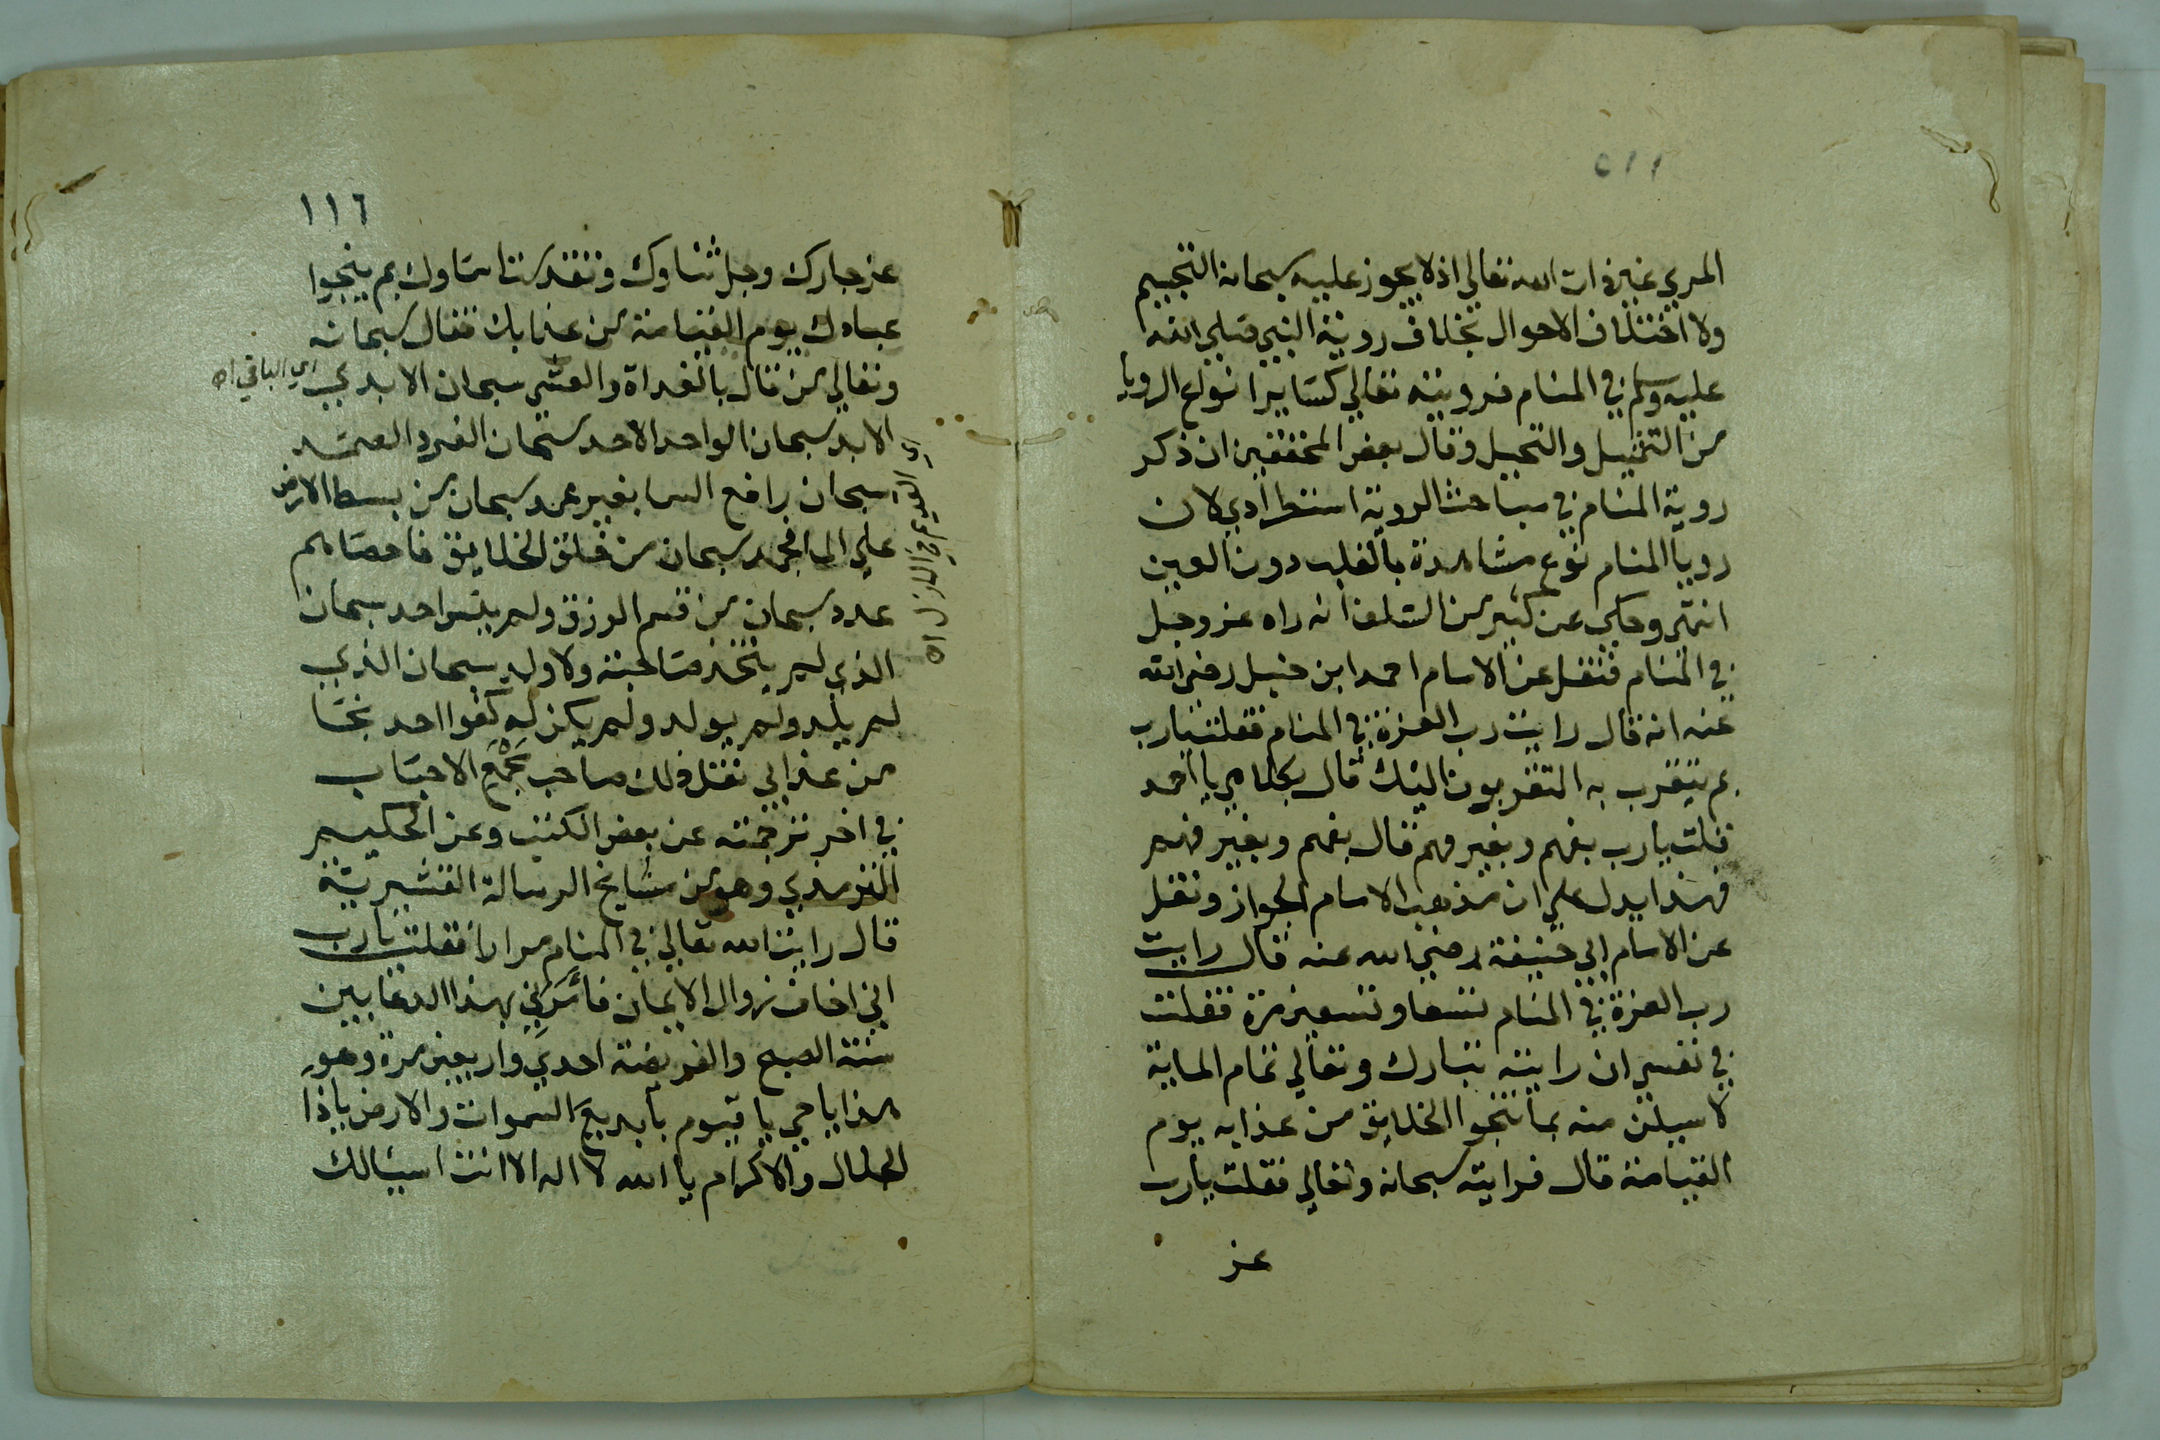 المري غير ذات الله تعالي اذ لا يجوز عليه سبحانه التجسيم
ولا اختلاف الاحوال بخلاف روية النبي صلي الله
عليه وسلم في المنام فرويته تعالي كساير انواع الرويا
من التخييل والتخيل وقال بعض المحققين ان ذكر
روية المنام في مباحث الروية استطرادي لان
رويا المنام نوع مشاهدة بالقلب دون العين
انتهي وحكي عن كثير من السلف انه راه عز وجل
في المنام فنقل عن الامام احمد ابن حنبل رضي الله
عنه انه قال رايت رب العزة في المنام فقلت يارب
بم يتقرب به المتقربون اليك قال بكلامي يا احمد
قلت يارب بفهم وبغير فهم قال بفهم وبغير فهم
فهذا يدل علي ان مذهب الامام الجواز ونقل
عن الامام ابي حنيفة رضي الله عنه قال رايت
رب العزة في المنام تسعا وتسعين مرة فقلت
في نفسي ان رايته تبارك وتعالي تمام الماية
لاسيلن منه بما تنجوا الخلايق من عذابه يوم
القيامة قال فرايته سبحانه وتعالي فقلت يارب
عز
١١٦
عز جارك وجل ثناوك وتقدست اسماوك بم ينجوا
عبادك يوم القيامة من عذابك فقال سبحانه
وتعالي من قال بالغداة والعشي سبحان الابدي
اي الباقي اه
الابد سبحان الواحد الاحد سبحان الفرد الصمد
سبحان رافع السما بغير عمد سبحان من بسط الارض
علي الما فجمد سبحان من خلق الخلايق فاحصاهم
عدد سبحان من قسم الرزق ولم ينس احد سبحان
الذي لم يتخذ صاحبة ولا ولد سبحان الذي
لم يلد ولم يولد ولم يكن له كفوا احد نجا
من عذابي نقل ذلك صاحب مجمع الاحباب
في اخر ترجمته عن بعض الكتب وعن الحكيم
الترمذي وهو من مشايخ الرسالة القشيرية
قال رايت الله تعالي في المنام مرارا فقلت يارب
اني اخاف زوال الايمان فامرني بهذا الدعا بين
سنة الصبح والفريضة احدي واربعين مرة وهو
هذا يا حي يا قيوم يا بديع السموات والارض يا ذا
الجلال والاكرام يا الله لا اله الا انت اسيالك